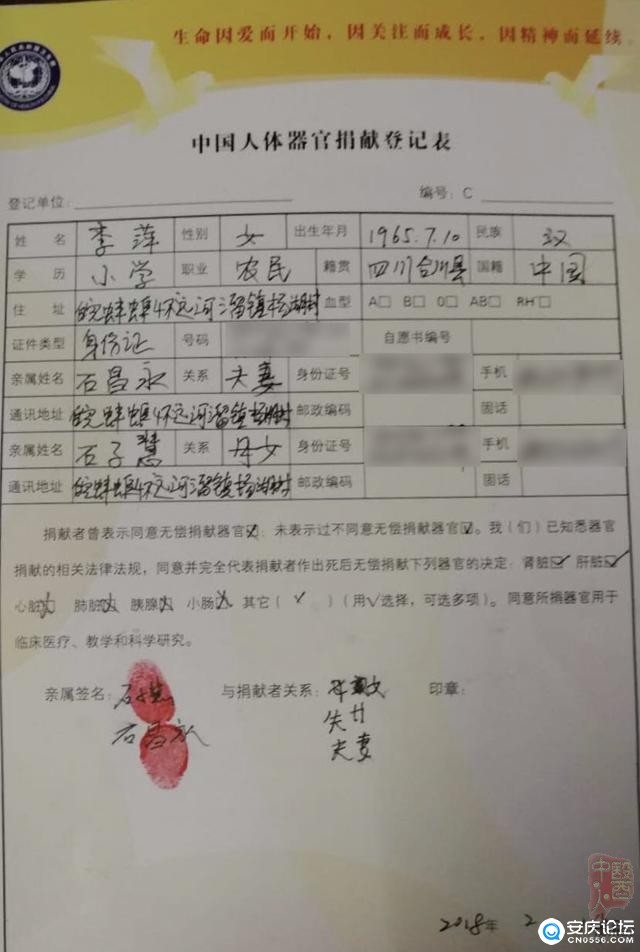 生命因爱而开始，因关注而成长，因精神而延续。
中国人体器官捐献登记表
登记单位： 编号：C
姓名 李萍 性别 女 出生年月 1965.7.10 民族 汉
学历 小学 职业 农民 籍贯 四川合川县 国籍 中国
住址 皖蚌埠怀远河溜镇杨湖村 血型 A□ B□ O□ AB□ RH□
证件类型 身份证 号码 自愿书编号
亲属姓名 石昌永 关系 夫妻 身份证号 手机
通讯地址 皖蚌埠怀远河溜镇杨湖村 邮政编码 固话
亲属姓名 石子慧 关系 母女 身份证号 手机
通讯地址 皖蚌埠怀远河溜镇杨湖村 邮政编码 固话
捐献者曾表示同意无偿捐献器官☑；未表示过不同意无偿捐献器官☑。我（们）已知悉器官
捐献的相关法律法规，同意并完全代表捐献者作出死后无偿捐献下列器官的决定：肾脏☑ 肝脏☑
心脏 肺脏 胰腺 小肠 其它（ ✓ ）（用√选择，可选多项）。同意所捐器官用于
临床医疗、教学和科学研究。
亲属签名： 与捐献者关系： 印章：
石昌永
夫妻
2018年 2
安庆论坛
CN0556.COM